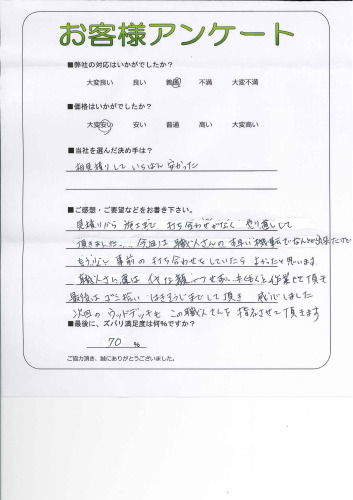 お客様アンケート
■弊社の対応はいかがでしたか?
大変良い 良い 普通 不満 大変不満
■価格はいかがでしたか?
大変安い 安い 普通 高い 大変高い
■当社を選んだ決め手は?
相見積りして いちばん安かった
■ご感想・ご要望などをお書き下さい。
見積りから 施工まで 打ち合わせがなく やり直しして
頂きました... 今回は 職人さんの 素早い機転でなんとか出来たけど
もう少し 事前の打ち合わせをしていたら よかったと思います
職人さん達は イヤな顔一つせず、もくもくと作業させて頂き
最後は ゴミ拾い はきそうじまでして頂き 感心しました
次回の ウッドデッキも この職人さんを 指名させて頂きます
■最後に、ズバリ満足度は何%ですか?
70 %
ご協力頂き、誠にありがとうございました。